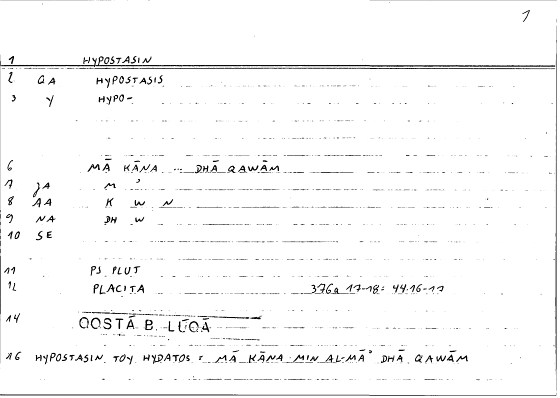 1
1 HYPOSTASIN
2 QA HYPOSTASIS
3 Y HYPO-
6 MĀ KĀNA ... DHĀ QAWĀM
7 JA M ʾ
8 AA K W N
9 NA DH W
10 SE
11 PS PLUT
12 PLACITA 376a 17-18: 44.16-17
14 QOSTĀ B. LŪQĀ
16 HYPOSTASIN TOY HYDATOS = MĀ KĀNA MIN AL-MĀʾ DHĀ QAWĀM